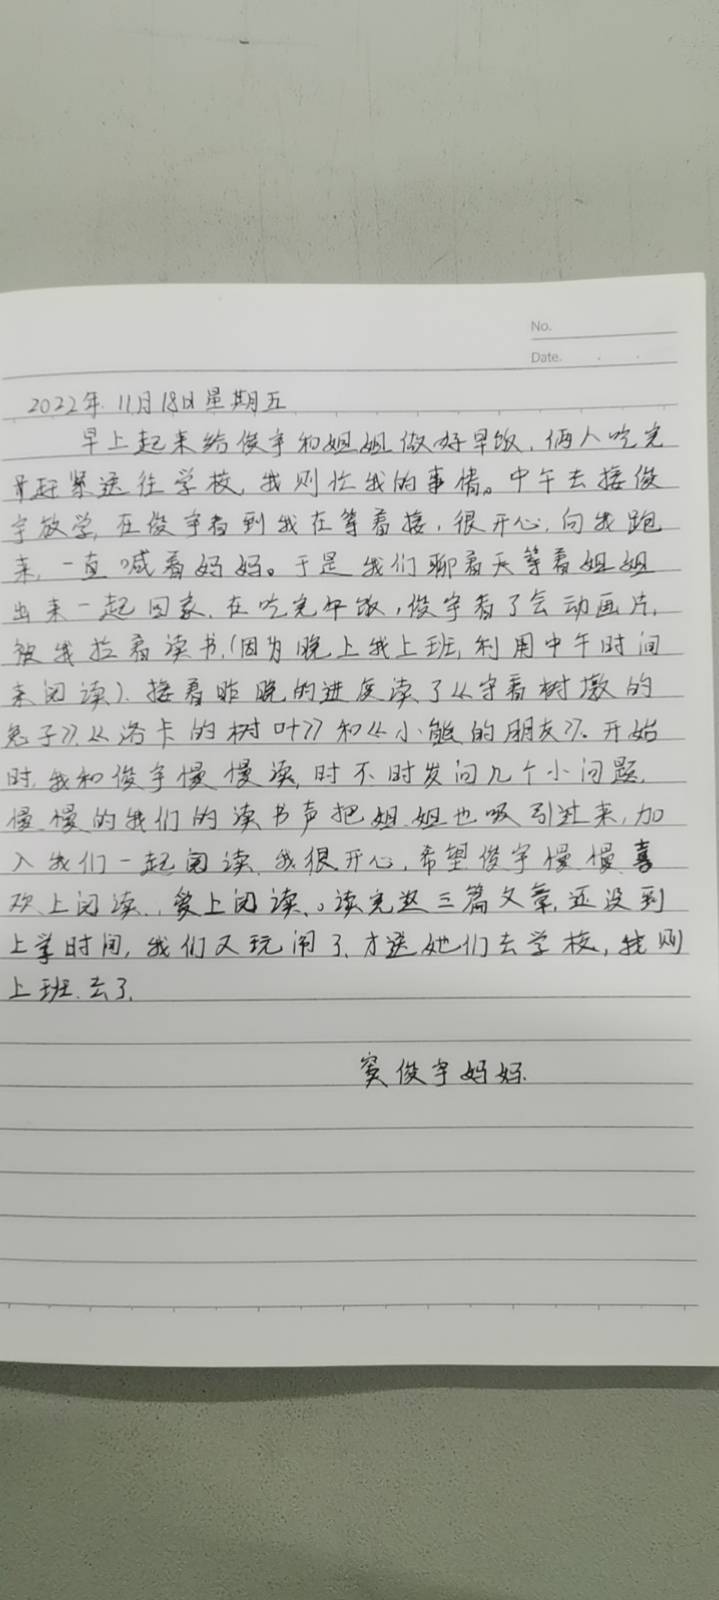 No.
Date.
2022年11月18日星期五
早上起来给俊宇和姐姐做好早饭,俩人吃完
赶紧送往学校,我则忙我的事情。中午去接俊
宇放学,在俊宇看到我在等着接,很开心,向我跑
来,一直喊着妈妈。于是我们聊着天等着姐姐
出来一起回家,在吃完午饭,俊宇看了会动画片,
被我拉着读书,(因为晚上我上班,利用中午时间
来阅读).接着昨晚的进度读了《守着树墩的
兔子》《洛卡的树叶》和《小熊的朋友》.开始
时,我和俊宇慢慢读,时不时发问几个小问题,
慢慢的我们的读书声把姐姐也吸引过来,加
入我们一起阅读,我很开心,希望俊宇慢慢喜
欢上阅读,爱上阅读。读完这三篇文章,还没到
上学时间,我们又玩闹了,才送她们去学校,我则
上班去了.
窦俊宇妈妈.